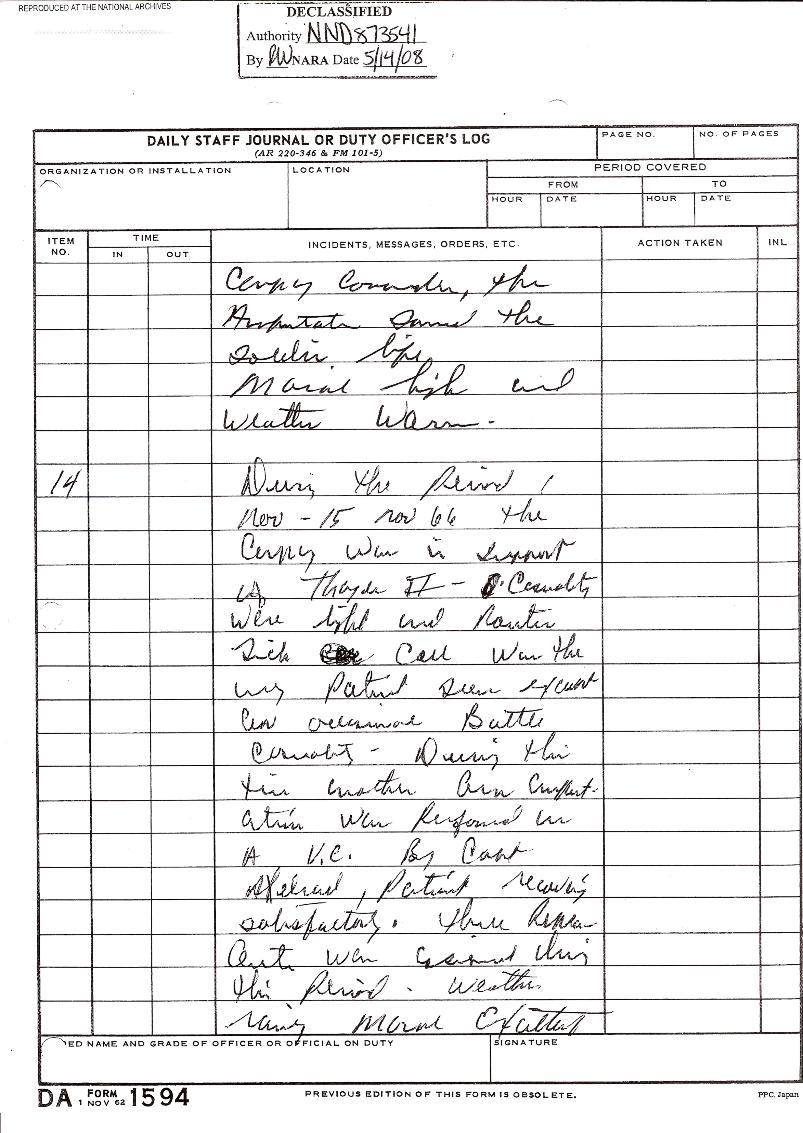 REPRODUCED AT THE NATIONAL ARCHIVES
DECLASSIFIED
Authority NND873541
By RW NARA Date 5/14/08
DAILY STAFF JOURNAL OR DUTY OFFICER'S LOG
(AR 220-346 & FM 101-5)
PAGE NO.
NO. OF PAGES
ORGANIZATION OR INSTALLATION
LOCATION
PERIOD COVERED
FROM
TO
HOUR
DATE
HOUR
DATE
ITEM NO.
TIME
IN
OUT
INCIDENTS, MESSAGES, ORDERS, ETC.
ACTION TAKEN
INL
the
the
life
Moral high and
Weather Warm -
14
During the Period 1
Nov - 15 nov 66 the
Company was in support
of Thayer II - Casualty
Were light and Routine
Sick Call Was the
only Patient Seen except
occasional Battle
Casualty - During this
time another Arm Amput-
ation Was Performed on
A V.C. By Capt
, Patient recovering
satisfactory. three
Was during
this Period. Weather
rainy Moral
ED NAME AND GRADE OF OFFICER OR OFFICIAL ON DUTY
SIGNATURE
DA FORM 1 NOV 62 1594
PREVIOUS EDITION OF THIS FORM IS OBSOLETE.
PPC, Japan